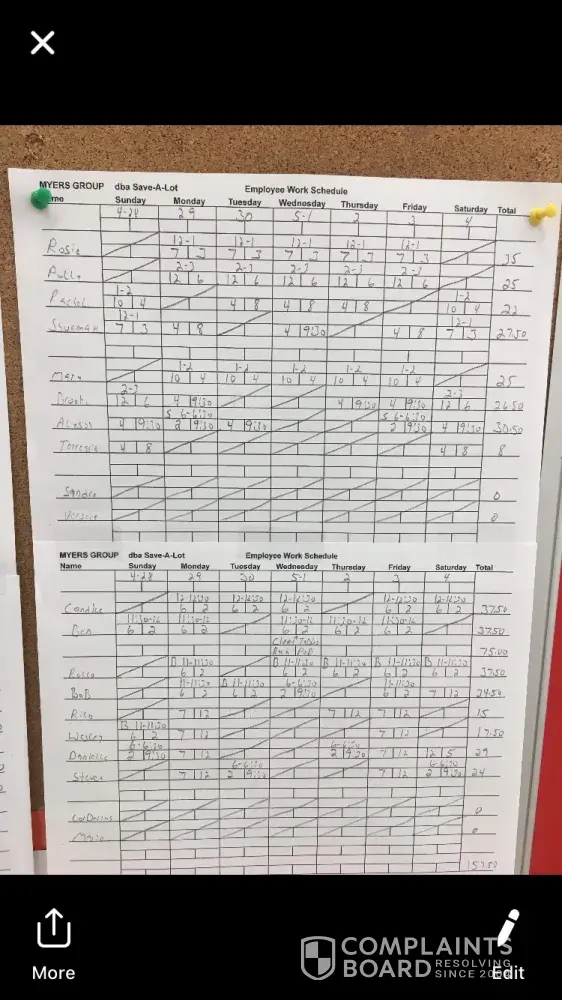 MYERS GROUP dba Save-A-Lot Employee Work Schedule
Name Sunday Monday Tuesday Wednesday Thursday Friday Saturday Total
4-28 29 30 5-1 2 3 4
12-1 12-1 12-1 12-1 12-1
Rosie 7 3 7 3 7 3 7 3 7 3 35
2-3 2-3 2-3 2-3 2-3
12 6 12 6 12 6 12 6 12 6 25
1-2 1-2
Rachel 10 4 4 8 4 8 4 8 10 4 22
12-1 12-1
7 3 4 8 4 9:30 4 8 7 3 27.50
1-2 1-2 1-2 1-2 1-2
10 4 10 4 10 4 10 4 10 4 25
2-3 2-3
12 6 4 9:30 4 9:30 4 9:30 12 6 26.50
5 6-6:30 5 6-6:30
4 9:30 2 9:30 4 9:30 2 9:30 4 9:30 30.50
4 8 4 8 8
Sandra 0
0
MYERS GROUP dba Save-A-Lot Employee Work Schedule
Name Sunday Monday Tuesday Wednesday Thursday Friday Saturday Total
4-28 29 30 5-1 2 3 4
12-12:30 12-12:30 12-12:30 12-12:30 12-12:30
Candice 6 2 6 2 6 2 6 2 6 2 37.50
11:30-12 11:30-12 11:30-12 11:30-12 11:30-12
Ben 6 2 6 2 6 2 6 2 6 2 37.50
Clean
75.00
B 11-11:30 B 11-11:30 B 11-11:30 B 11-11:30 B 11-11:30
6 2 6 2 6 2 6 2 6 2 37.50
11-11:30 B 11-11:30 6-6:30 11-11:30
BoB 6 2 6 2 2 9:30 6 2 7 12 24.50
7 12 7 12 7 12 15
B 11-11:30
Wesley 6 2 7 12 17.50
6-6:30 6-6:30
Danielle 2 9:30 7 12 2 9:30 7 12 12 5 29
6-6:30 6-6:30
Steven 7 12 2 9:30 7 12 2 9:30 24
0
Mario 0
157.50
More
Edit
COMPLAINTS
BOARD RESOLVING
SINCE